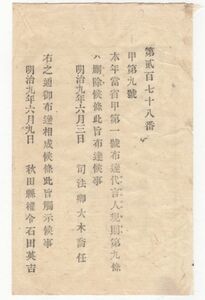 第貳百七十八番
甲第九號
本年當省甲第一號布達代言人規則第九條
ハ刪除候條此旨布達候事
明治九年六月三日　司法卿大木喬任
右之通御布達相成候條此旨觸示候事
明治九年六月九日　秋田縣權令石田英吉